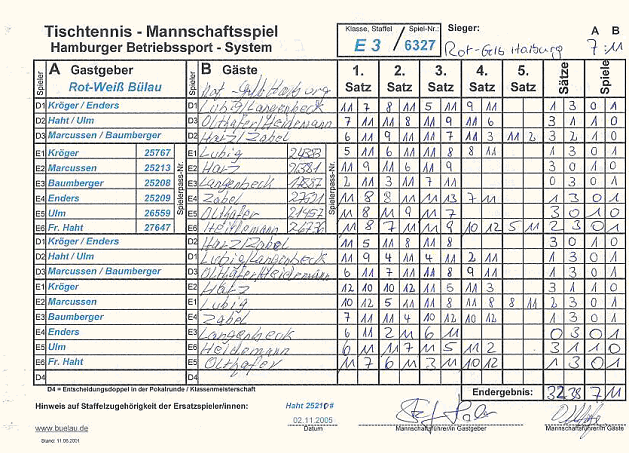 Tischtennis - Mannschaftsspiel
Hamburger Betriebssport - System
Klasse, Staffel Spiel-Nr.: Sieger: A B
E 3 / 6327 Rot-Gelb Harburg 7 : 11
Spieler A Gastgeber Spieler B Gäste 1. 2. 3. 4. 5. Sätze Spiele
Rot-Weiß Bülau Rot-Gelb Harburg Satz Satz Satz Satz Satz
D1 Kröger / Enders D1 Lubig/Langenbeck 11 7 8 11 5 11 9 11 1 3 0 1
D2 Haht / Ulm D2 Olthafer/Heidemann 7 11 11 8 11 9 11 6 3 1 1 0
D3 Marcussen / Baumberger D3 Harz/Zabel 6 11 9 11 11 7 11 3 11 2 3 2 1 0
E1 Kröger 25767 E1 Lubig 5 11 6 11 11 8 8 11 1 3 0 1
E2 Marcussen 25213 E2 Harz 11 9 11 6 11 9 3 0 1 0
E3 Baumberger 25208 E3 Langenbeck 2 11 3 11 7 11 0 3 0 1
E4 Enders 25209 E4 Zabel 11 8 8 11 11 13 7 11 1 3 0 1
E5 Ulm 26559 E5 Olthafer 11 8 11 9 11 7 3 0 1 0
E6 Fr. Haht 27647 E6 Heidemann 11 8 7 11 11 9 10 12 5 11 2 3 0 1
Spielerpass-Nr. Spielerpass-Nr.
D1 Kröger / Enders D2 Harz/Zabel 11 5 11 8 11 8 3 0 1 0
D2 Haht / Ulm D1 Lubig/Langenbeck 11 9 4 11 4 11 2 11 1 3 0 1
D3 Marcussen / Baumberger D3 Olthafer/Heidemann 6 11 7 11 11 8 9 11 1 3 0 1
E1 Kröger E2 Harz 12 10 10 12 11 5 11 3 3 1 1 0
E2 Marcussen E1 Lubig 10 12 5 11 11 8 11 8 8 11 2 3 0 1
E3 Baumberger E4 Zabel 7 11 11 4 10 12 10 12 1 3 0 1
E4 Enders E3 Langenbeck 6 11 2 11 6 11 0 3 0 1
E5 Ulm E6 Heidemann 6 11 11 7 11 5 11 2 3 1 1 0
E6 Fr. Haht E5 Olthafer 11 7 6 11 3 11 10 12 1 3 0 1
D4 D4
D4 = Entscheidungsdoppel in der Pokalrunde / Klassenmeisterschaft Endergebnis: 32 38 7 11
Hinweis auf Staffelzugehörigkeit der Ersatzspieler/innen: Haht 25210#
www.buelau.de 02.11.2005
Datum Mannschaftsführer/in Gastgeber Mannschaftsführer/in Gäste
Stand: 11.06.2001